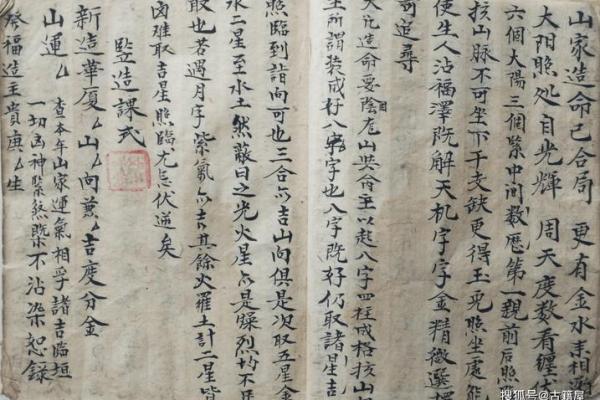 山家造命已合局　更有金水来相
太阳照处自光辉　周天度数看缠
六個太陽三個緊中间数歷第一親前后照
按山脉不可坐下干支缺更得玉兎照坐處能
使生人沾福澤既解天机字字金精微選擇
可追尋
大凡造命要陰龙山共合主以起八字四柱成格按山
主所謂裝成好八字也八字既好仍取諸星吉
照臨到諧向可也三合亦吉山向俱是次取五星金
水二星至水土然蔽日之光火星亦是燥烈均不
取也若遇月字紫氣亦吉其餘火羅土計二星皆
凶难取吉星照臨尤忌伏逆矣
監造課式
新造華厦厶山厶向兼厶吉度分金
山運厶
查本年山家運氣相孚諸吉臨垣
一切凶神緊煞概不沾染恕錄
祭福造主貴庚厶生
搜狐号@古籍屋